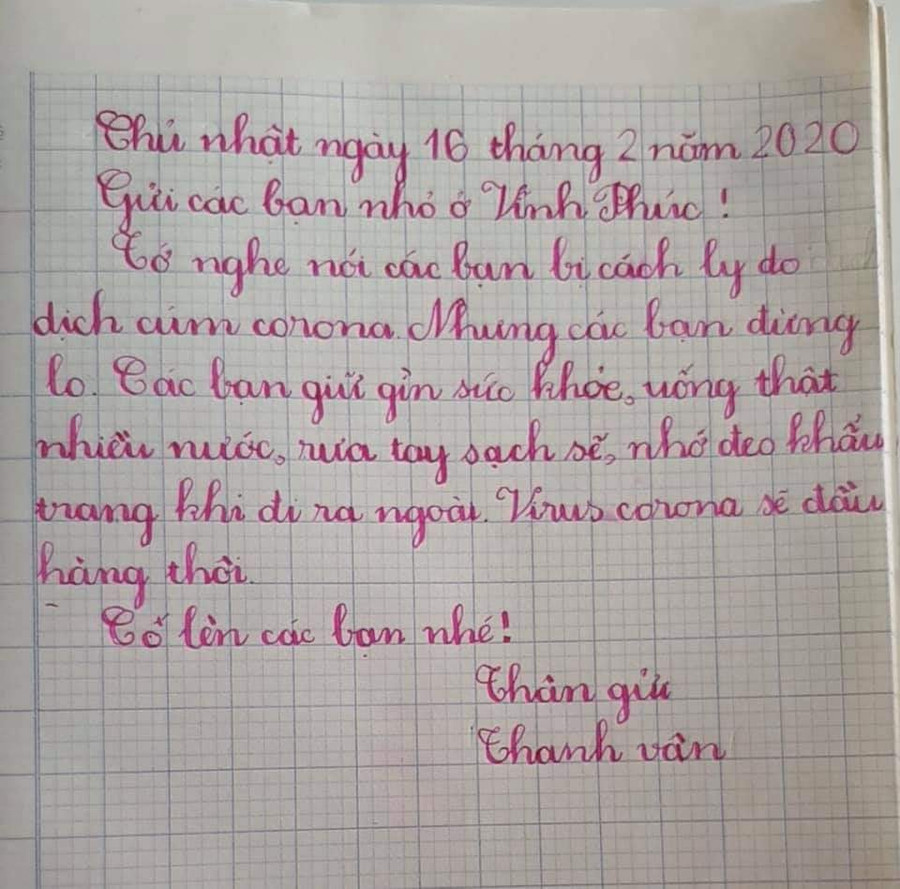 Chủ nhật ngày 16 tháng 2 năm 2020
Gửi các bạn nhỏ ở Vĩnh Phúc!
Tớ nghe nói các bạn bị cách ly do
dịch cúm corona. Nhưng các bạn đừng
lo. Các bạn giữ gìn sức khỏe, uống thật
nhiều nước, rửa tay sạch sẽ, nhớ đeo khẩu
trang khi đi ra ngoài. Virus corona sẽ đầu
hàng thôi.
Cố lên các bạn nhé!
Thân gửi
Thanh vân